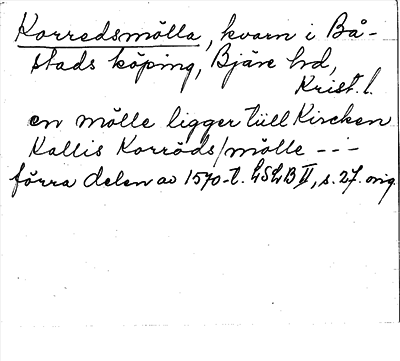 Korredsmölla, kvarn i Bå-
stads köping, Bjäre hd,
Krist. l.
en mölle ligger tiill Kircken
Kallis Korröds/mölle - - -
förra delen av 1570-t. LSLB II, s. 27. orig.